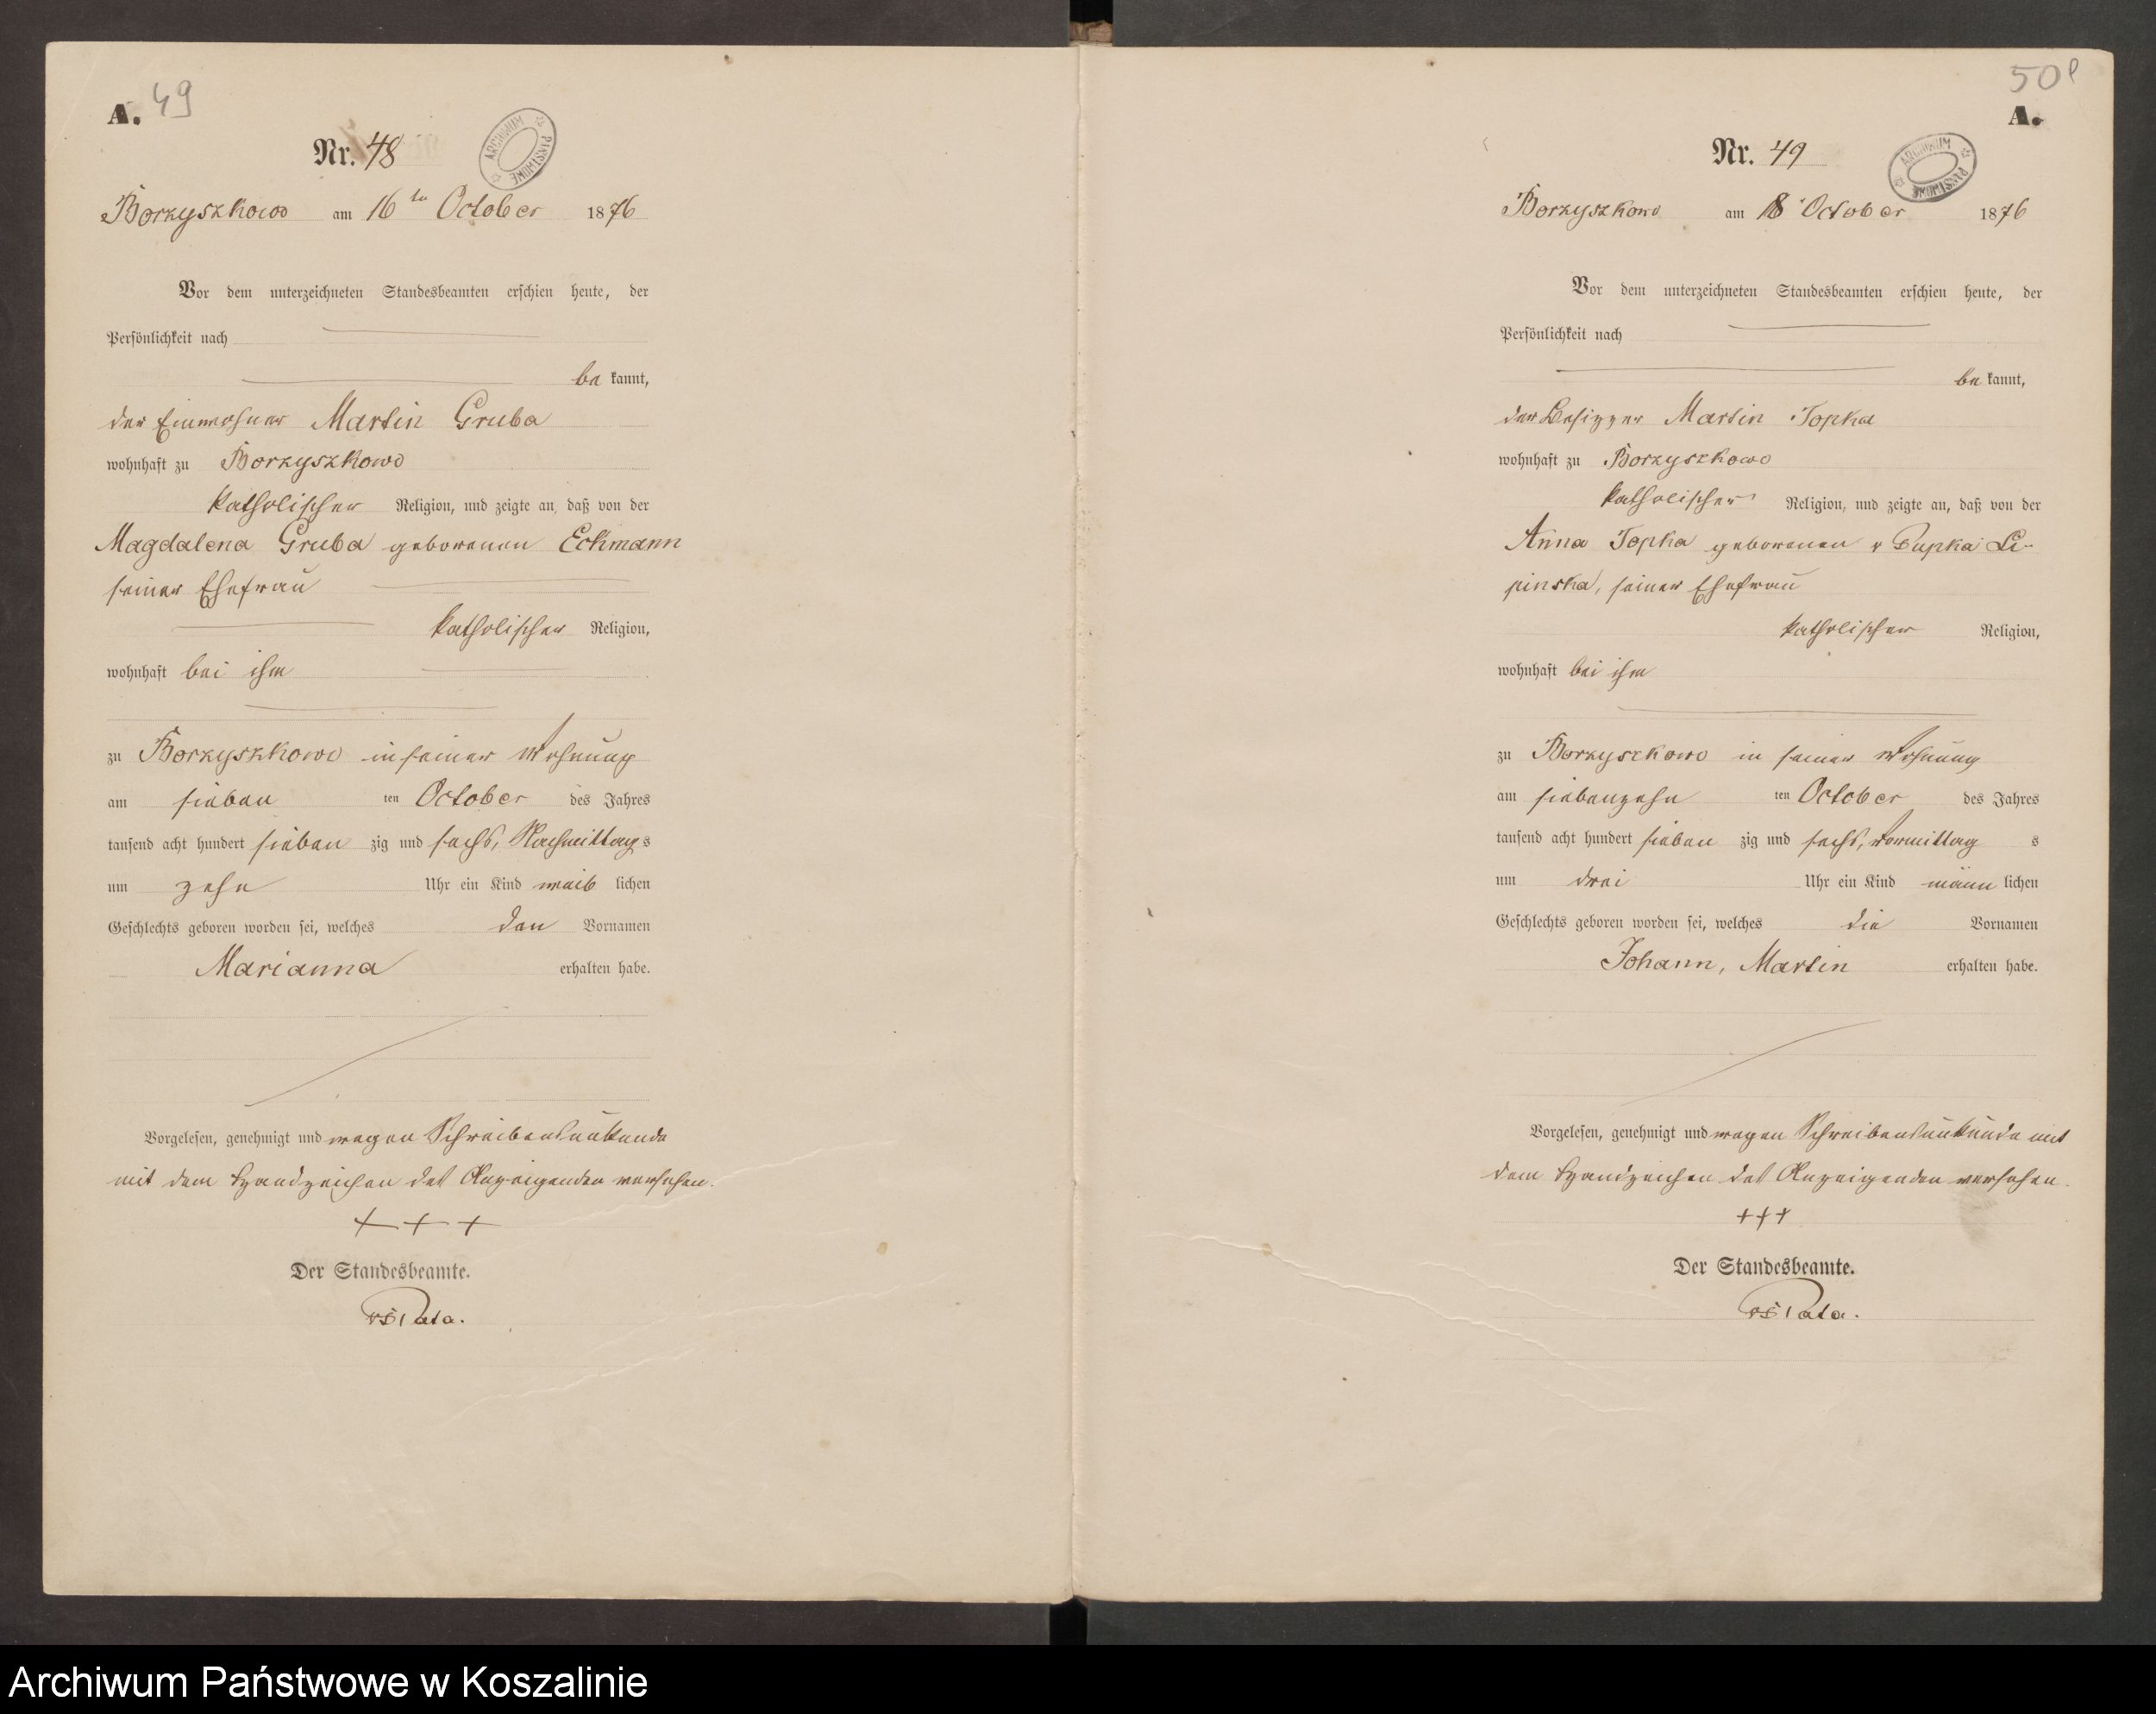 A. 49
Nr. 48
ARCHIWUM PAŃSTWOWE
Borzyszkowo am 16ten October 1876
Vor dem unterzeichneten Standesbeamten erschien heute, der
Persönlichkeit nach
be kannt,
der Einwohner Martin Gruba
wohnhaft zu Borzyszkowo
katholischer Religion, und zeigte an, daß von der
Magdalena Gruba geborenen Eckmann
seiner Ehefrau
katholischer Religion,
wohnhaft bei ihm
zu Borzyszkowo in seiner Wohnung
am sieben ten October des Jahres
tausend acht hundert sieben zig und sechs, Nachmittag s
um zehn Uhr ein Kind weib lichen
Geschlechts geboren worden sei, welches den Vornamen
Marianna erhalten habe.
Vorgelesen, genehmigt und wegen Schreibensunkunde
mit dem Handzeichen des Anzeigenden versehen.
+ + +
Der Standesbeamte.
Pata.
50
A.
Nr. 49
ARCHIWUM PAŃSTWOWE
Borzyszkowo am 18 October 1876
Vor dem unterzeichneten Standesbeamten erschien heute, der
Persönlichkeit nach
be kannt,
der Besitzer Martin Topka
wohnhaft zu Borzyszkowo
katholischer Religion, und zeigte an, daß von der
Anna Topka geborenen v Pupka Li-
pinska, seiner Ehefrau
katholischer Religion,
wohnhaft bei ihm
zu Borzyszkowo in seiner Wohnung
am siebenzehn ten October des Jahres
tausend acht hundert sieben zig und sechs, Vormittag s
um drei Uhr ein Kind männ lichen
Geschlechts geboren worden sei, welches die Vornamen
Johann, Martin erhalten habe.
Vorgelesen, genehmigt und wegen Schreibensunkunde mit
dem Handzeichen des Anzeigenden versehen.
+++
Der Standesbeamte.
Pata.
Archiwum Państwowe w Koszalinie